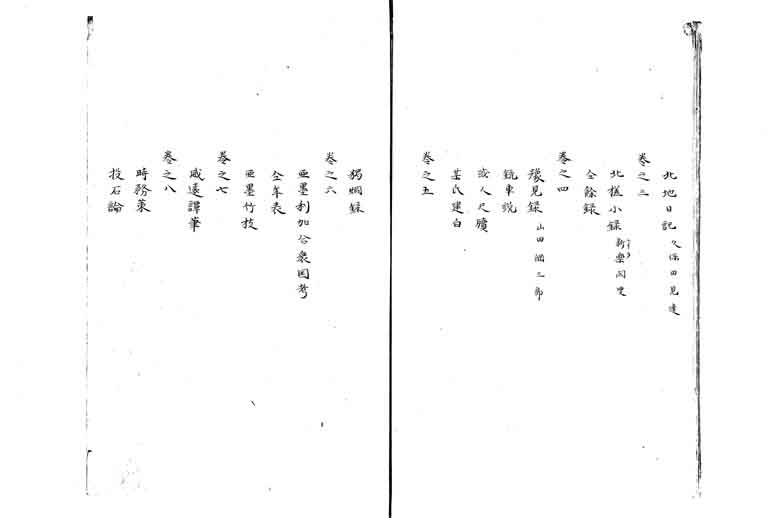 北地日記 久保田見達
巻之三
北槎小録 新楽閑叟
仝餘録
巻之四
豫見録 山田 三郎
銃車説
或人尺牘
某氏建白
巻之五
獨 録
巻之六
亜墨利加合衆国考
仝年表
亜墨竹枝
巻之七
威遠譚筆
巻之八
時務策
投石論